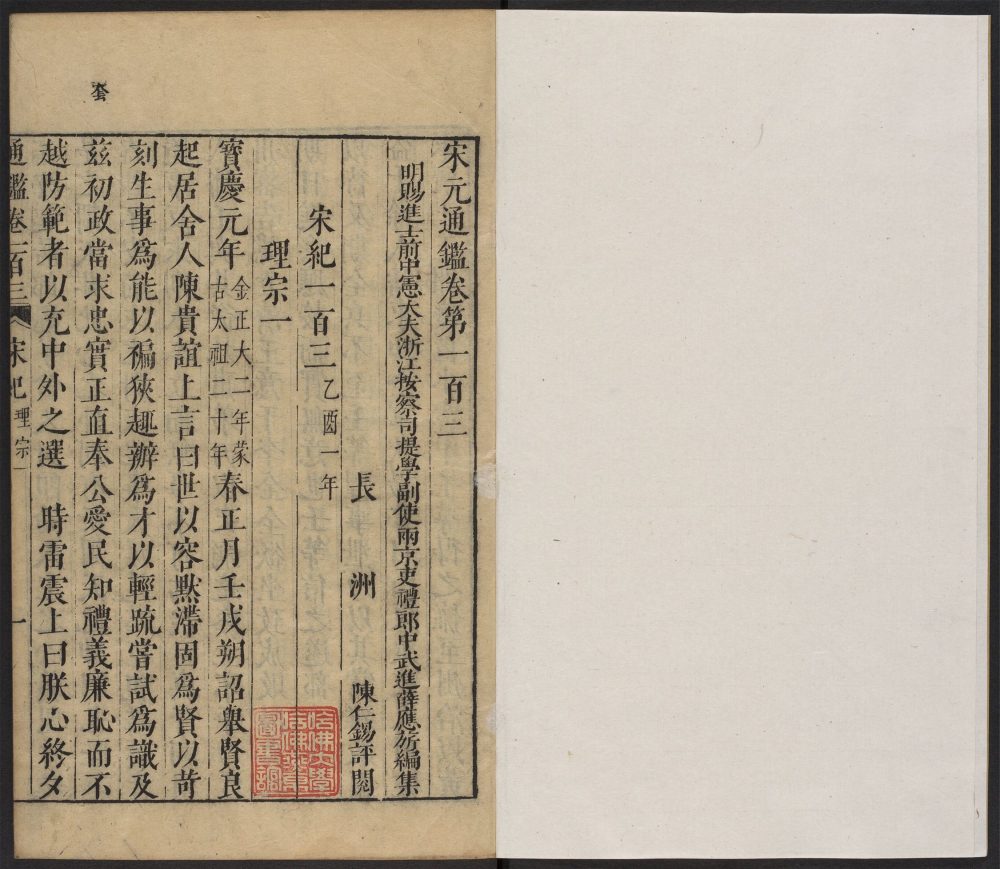 宋元通鑑卷第一百三
明賜進士前中憲大夫浙江按察司提學副使兩京吏禮郎中武進薛應旂編集
長洲 陳仁錫評閱
宋紀一百三 乙酉一年
理宗一
寶慶元年 金正大二年蒙古太祖二十年 春正月壬戌朔詔舉賢良
起居舍人陳貴誼上言曰世以容默滯固爲賢以苛
刻生事爲能以褊狹趣辦爲才以輕疏嘗試爲識及
茲初政當求忠實正直奉公愛民知禮義廉恥而不
越防範者以充中外之選 時雷震上曰朕心終夕
通鑑卷一百三 宋紀 理宗一 一
哈佛大學
哈佛燕京
圖書館